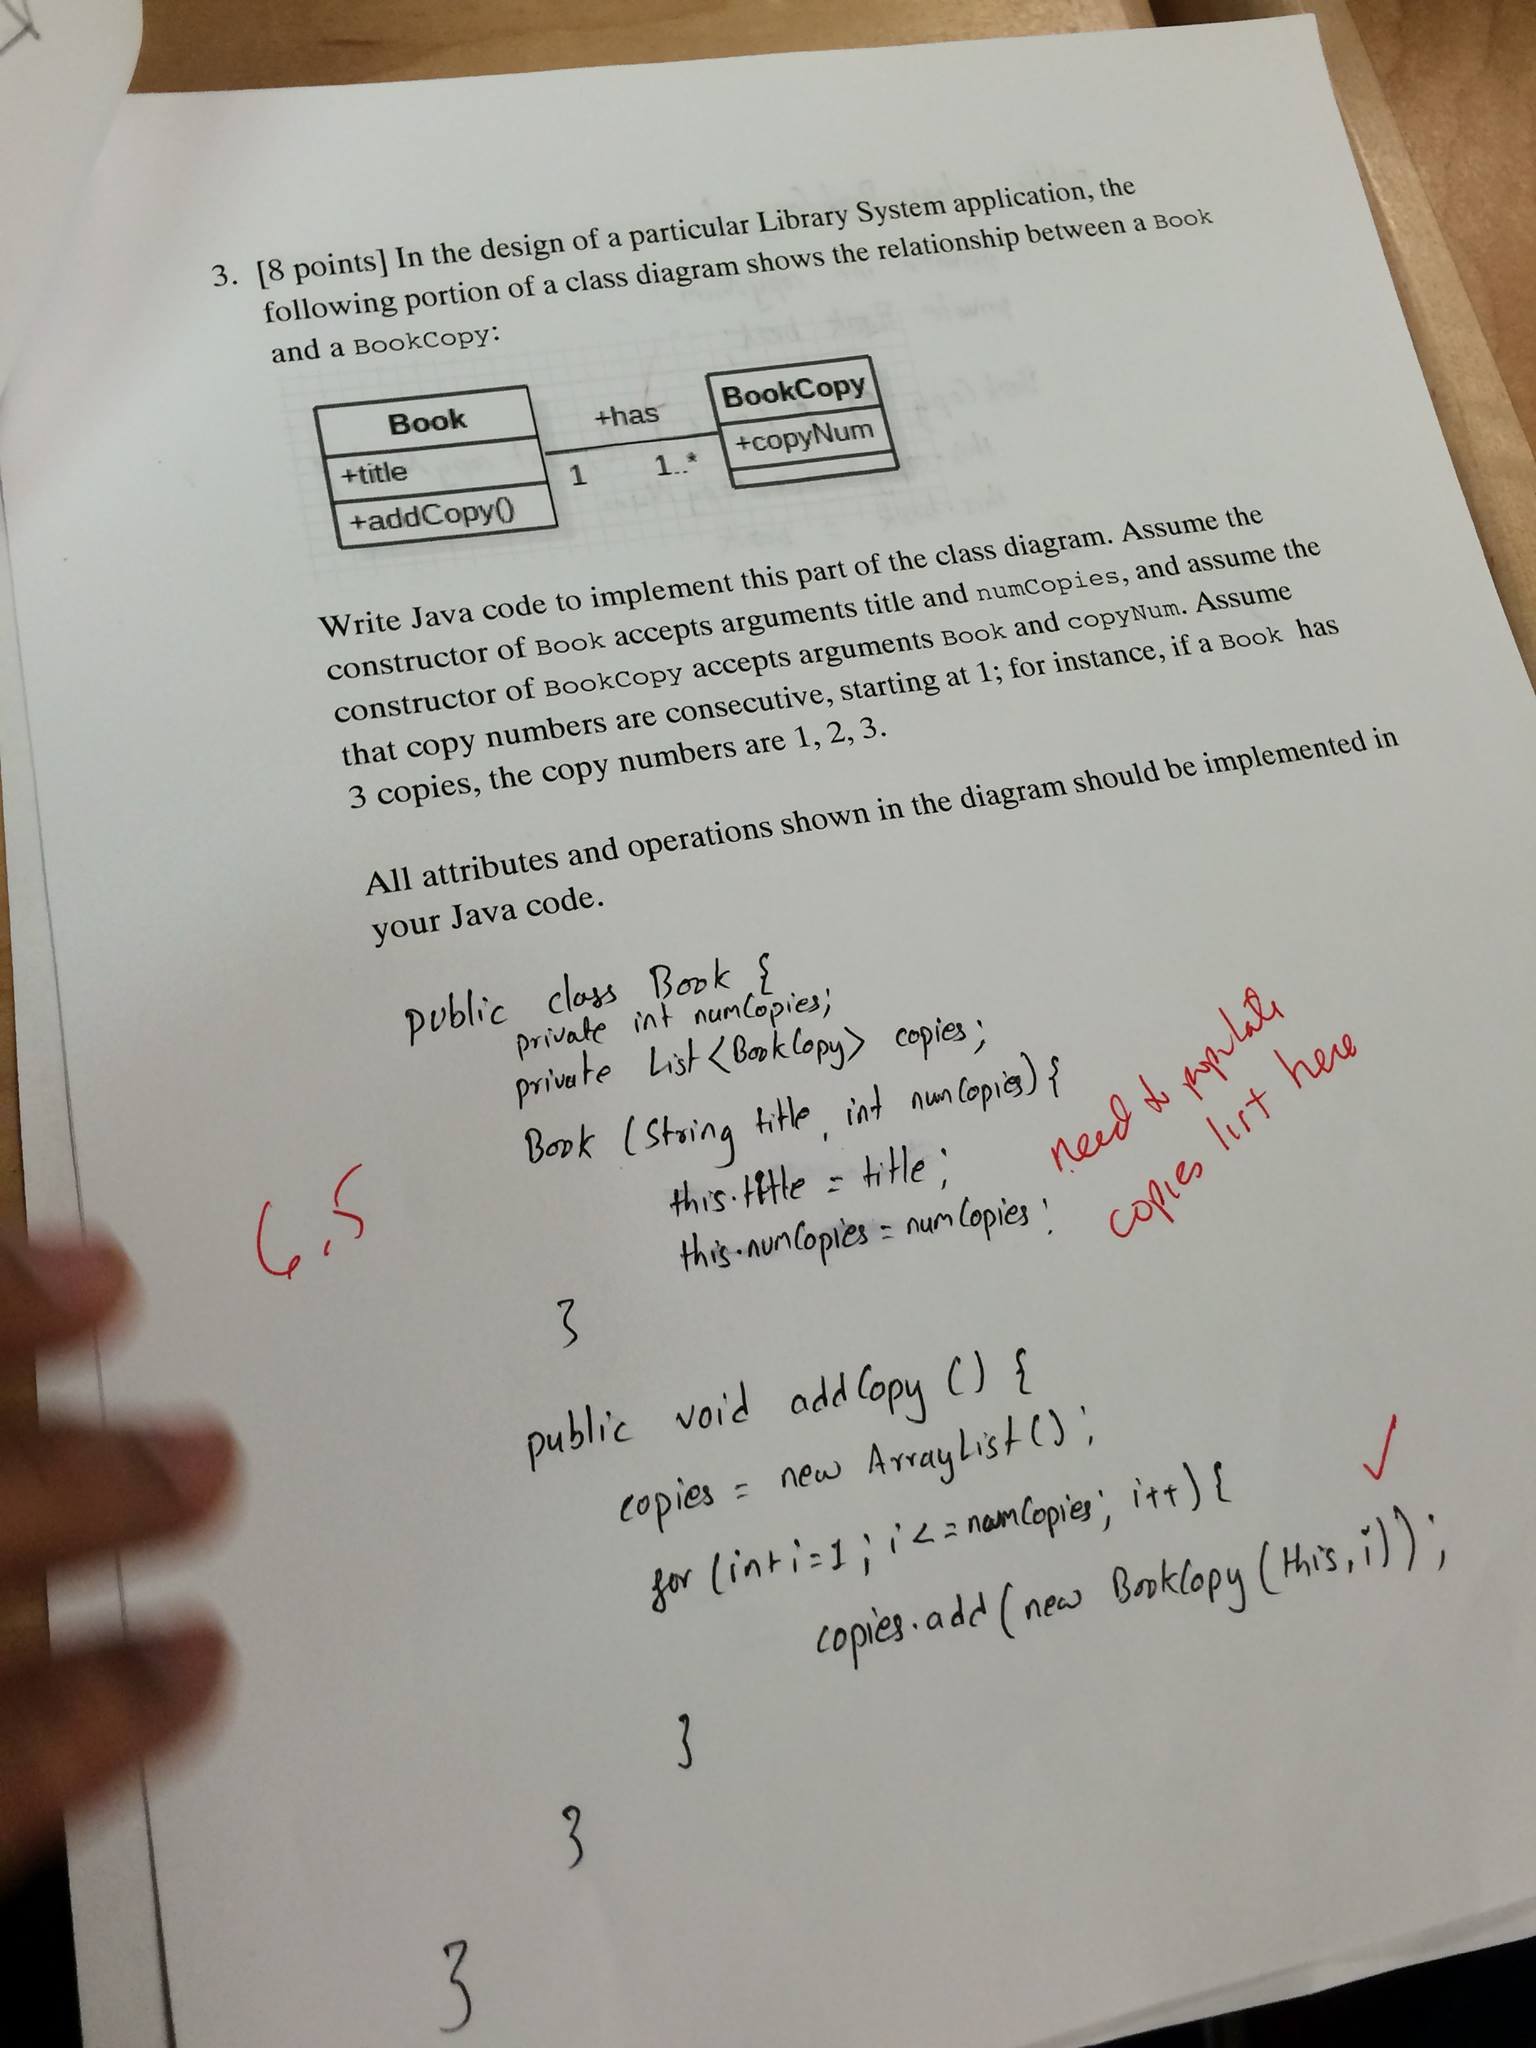 3. [8 points] In the design of a particular Library System application, the
following portion of a class diagram shows the relationship between a Book
and a BookCopy:
Book
+title
+addCopy()
+has
1
1..*
BookCopy
+copyNum
Write Java code to implement this part of the class diagram. Assume the
constructor of Book accepts arguments title and numCopies, and assume the
constructor of BookCopy accepts arguments Book and copyNum. Assume
that copy numbers are consecutive, starting at 1; for instance, if a Book has
3 copies, the copy numbers are 1, 2, 3.
All attributes and operations shown in the diagram should be implemented in
your Java code.
public class Book {
private int numCopies;
private List<BookCopy> copies;
Book (String title, int numCopies) {
this.title = title;
this.numCopies = numCopies;
need to populate
copies list here
6.5
}
public void addCopy () {
copies = new ArrayList();
for (int i=1; i<=numCopies; i++) {
copies.add(new BookCopy(this, i));
}
}
}